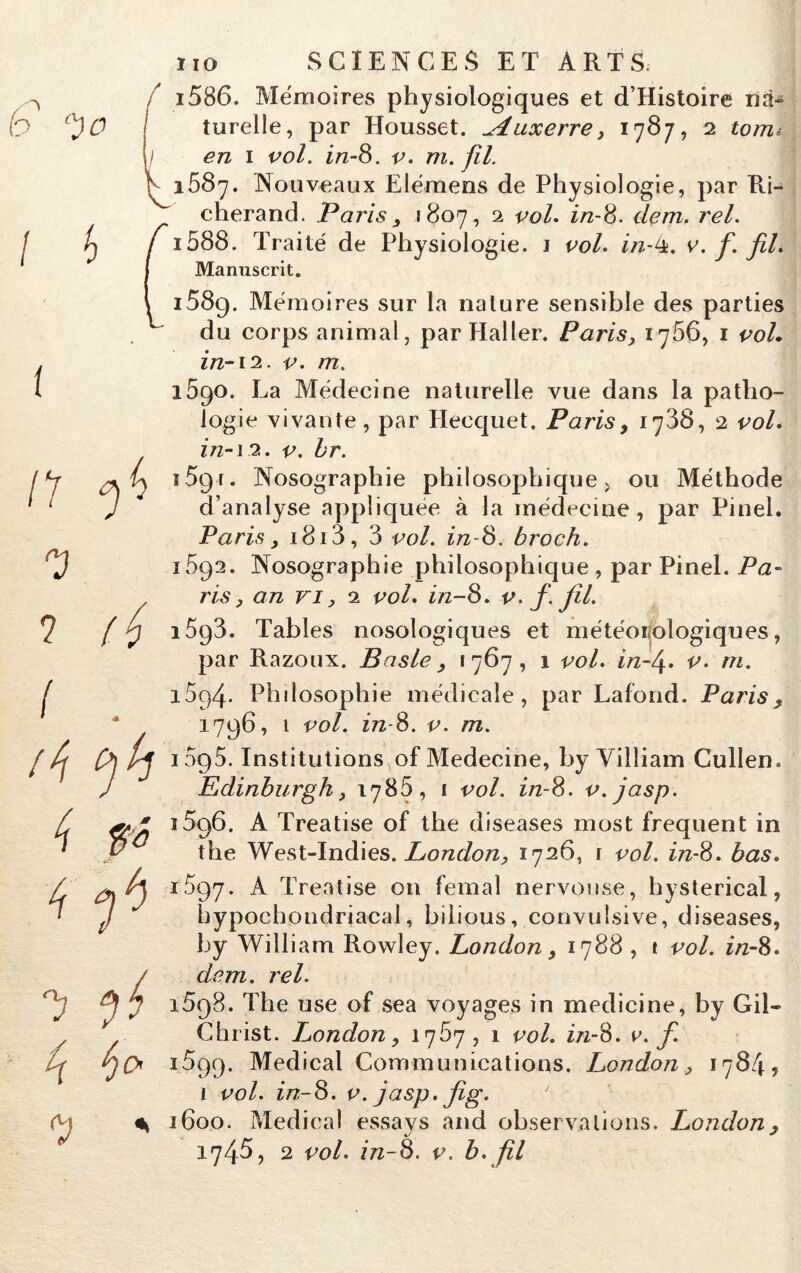 110 SCIENCES ET ARTS.
1586. Mémoires physiologiques et d'Histoire na-
turelle, par Housset. Auxerre, 1787, 2 tom.
en 1 vol. in-8. v. m. fil.
1587. Nouveaux Elémens de Physiologie, par Ri-
cherand. Paris, 1807, 2 vol. in-8. dem. rel.
1588. Traité de Physiologie. 1 vol. in-4. v. f. fil.
Manuscrit.
1589. Mémoires sur la nature sensible des parties
du corps animal, par Haller. Paris, 1756, 1 vol.
in-12. v. m.
1590. La Médecine naturelle vue dans la patho-
logie vivante, par Hecquet. Paris, 1738, 2 vol.
in-12. v. br.
1591. Nosographie philosophique, ou Méthode
d'analyse appliquée à la médecine, par Pinel.
Paris, 1813, 3 vol. in-8. broch.
1592. Nosographie philosophique, par Pinel. Pa-
ris, an VI, 2 vol. in-8. v. f. fil.
1593. Tables nosologiques et météorologiques,
par Razoux. Basle, 1767, 1 vol. in-4. v. m.
1594. Philosophie médicale, par Lafond. Paris,
1796, 1 vol. in-8. v. m.
1595. Institutions of Medecine, by Villiam Cullen.
Edinburgh, 1785, 1 vol. in-8. v. jasp.
1596. A Treatise of the diseases most frequent in
the West-Indies. London, 1726, 1 vol. in-8. bas.
1597. A Treatise on femal nervouse, hysterical,
hypochondriacal, bilious, convulsive, diseases,
by William Rowley. London, 1788, 1 vol. in-8.
dem. rel.
1598. The use of sea voyages in medicine, by Gil-
Christ. London, 1757, 1 vol. in-8. v. f.
1599. Medical Communications. London, 1784,
1 vol. in-8. v. jasp. fig.
1600. Medical essays and observations. London,
1745, 2 vol. in-8. v. b. fil